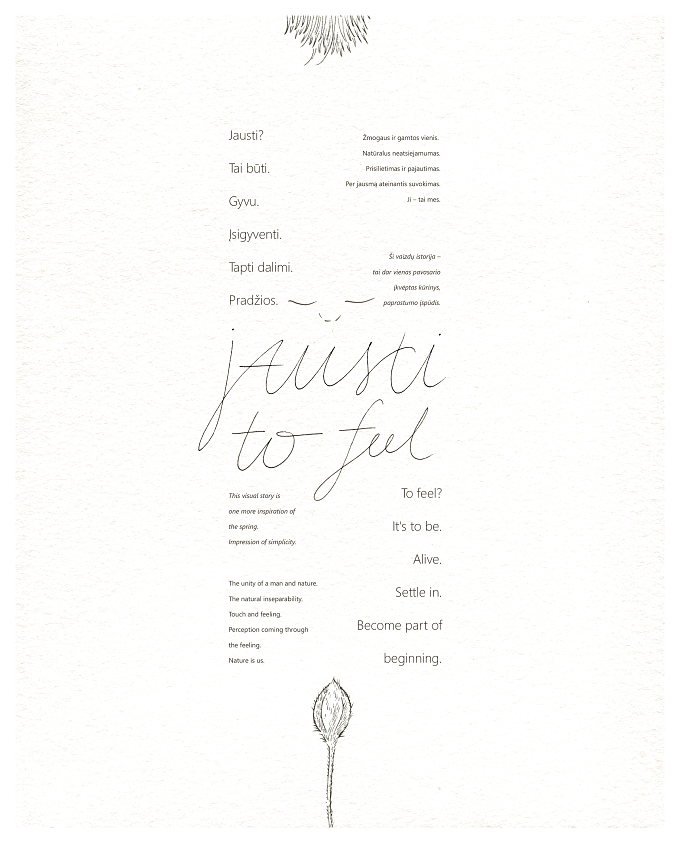 Jausti?
Tai būti.
Gyvu.
Įsigyventi.
Tapti dalimi.
Pradžios.
Žmogaus ir gamtos vienis.
Natūralus neatsiejamumas.
Prisilietimas ir pajautimas.
Per jausmą ateinantis suvokimas.
Ji – tai mes.
Ši vaizdų istorija –
tai dar vienas pavasario
įkvėptas kūrinys,
paprastumo įspūdis.
jausti
to feel
This visual story is
one more inspiration of
the spring.
Impression of simplicity.
The unity of a man and nature.
The natural inseparability.
Touch and feeling.
Perception coming through
the feeling.
Nature is us.
To feel?
It's to be.
Alive.
Settle in.
Become part of
beginning.